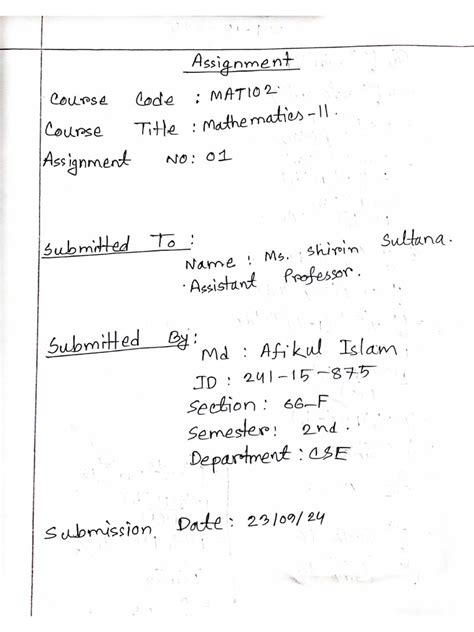 Assignment
Course Code : MAT102.
Course Title : Mathematics-II.
Assignment No: 01
Submitted To :
Name : Ms. Shirin Sultana.
Assistant Professor.
Submitted By:
Md : Afikul Islam.
ID : 241-15-875
Section : 66-F
Semester: 2nd.
Department : CSE
Submission Date: 23/09/24